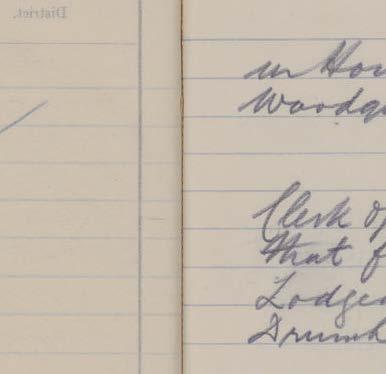 District.
in Hou
Woodga
Clerk of
that f
Lodged
Drumh